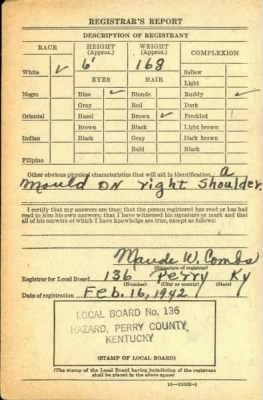 REGISTRAR'S REPORT
DESCRIPTION OF REGISTRANT
RACE HEIGHT (Approx.) WEIGHT (Approx.) COMPLEXION
6' 168
White ✓ Sallow
EYES HAIR Light
Negro Blue ✓ Blonde Ruddy ✓
Gray Red Dark
Oriental Hazel Brown ✓ Freckled
Brown Black Light brown
Indian Black Gray Dark brown
Bald Black
Filipino
Other obvious physical characteristics that will aid in identification a
mould on right shoulder.
I certify that my answers are true; that the person registered has read or has had
read to him his own answers; that I have witnessed his signature or mark and that
all of his answers of which I have knowledge are true, except as follows:
Maude W. Combs
(Signature of registrar)
Registrar for Local Board 136 Perry Ky
(Number) (City or county) (State)
Date of registration Feb. 16, 1942
LOCAL BOARD No. 136
HAZARD, PERRY COUNTY
KENTUCKY
(STAMP OF LOCAL BOARD)
(The stamp of the Local Board having jurisdiction of the registrant
shall be placed in the above space)